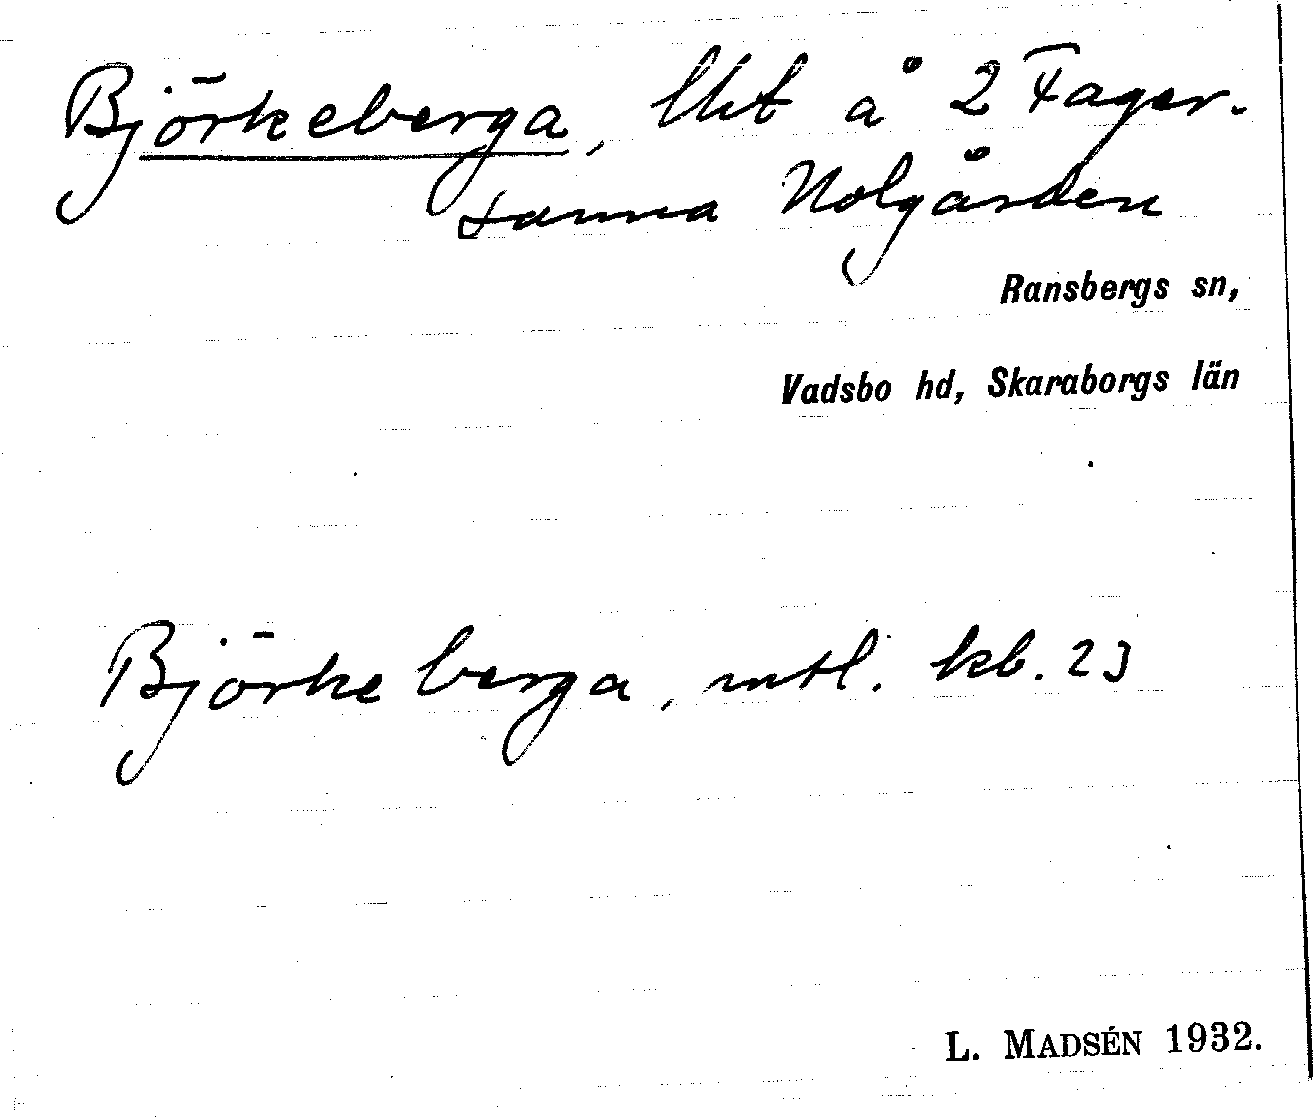 Björkeberga, lht å 2 Fager-
sanna Nolgården
Ransbergs sn,
Vadsbo hd, Skaraborgs län
Björkeberga, mtl. kb. 23
L. MADSÉN 1932.